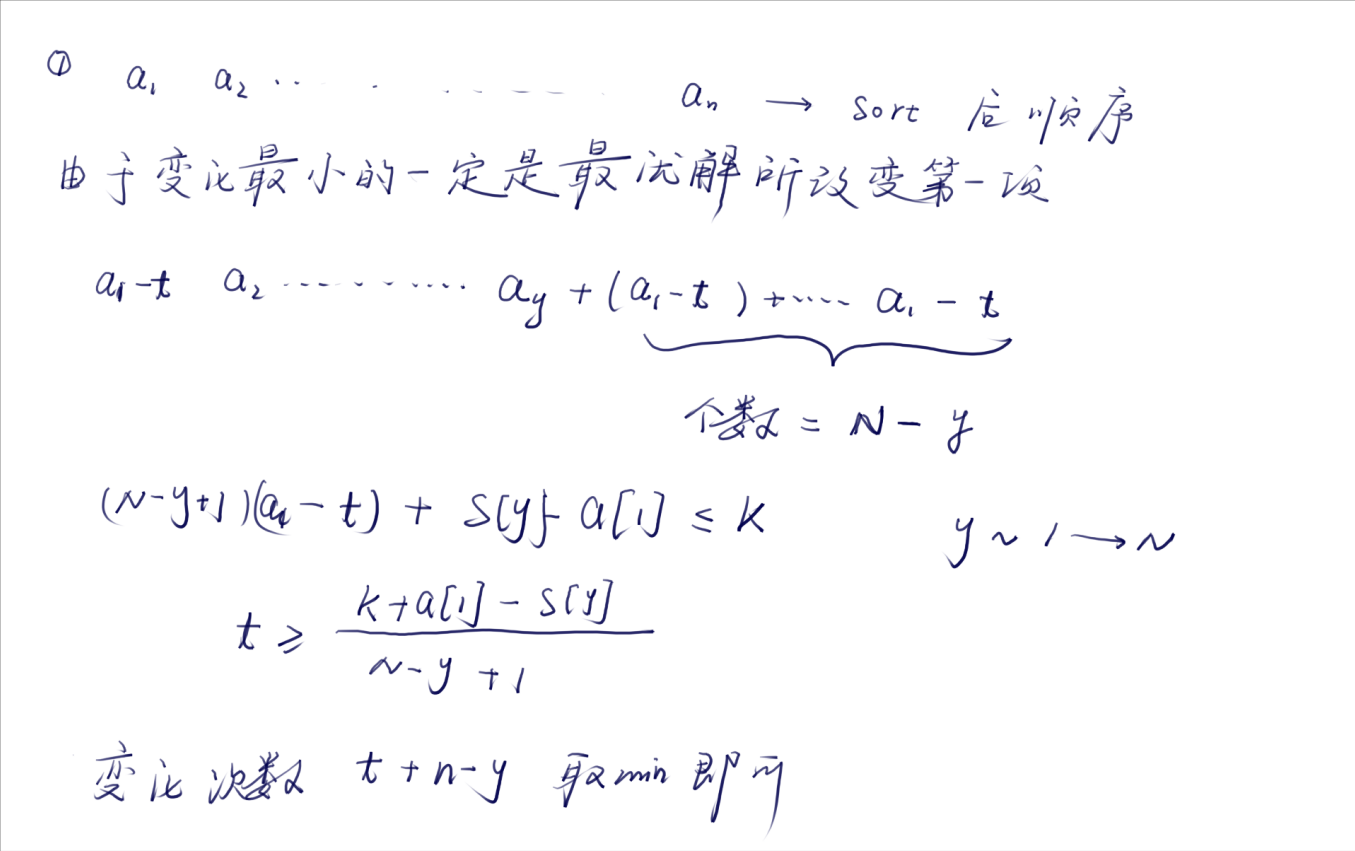 ① a₁ a₂ ‥ · · – – – – a_n → sort 后顺序
由于变化最小的一定是最优解所改变第一项
a₁-t a₂ ---------- a_y + (a₁-t) + ···-- a₁ - t
个数 = N - y
(N-y+1)(a₁-t) + S[y]- a[1] ≤ K y ~ 1 → N
t ≥ (K+a[1] - S[y]) / (N-y+1)
变化次数 t+n-y 取min即可